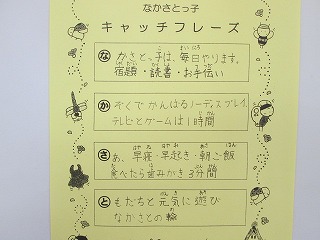 なかさとっ子
キャッチフレーズ
な かさとっ子は、毎日やります。
宿題・読書・お手伝い
か ぞくで かんばるノーディスプレイ。
テレビとゲームは1時間
さ あ、早寝・早起き・朝ご飯
食べたら歯みがき3分間
と もだちと 元気に 遊び
なかさとの 輪